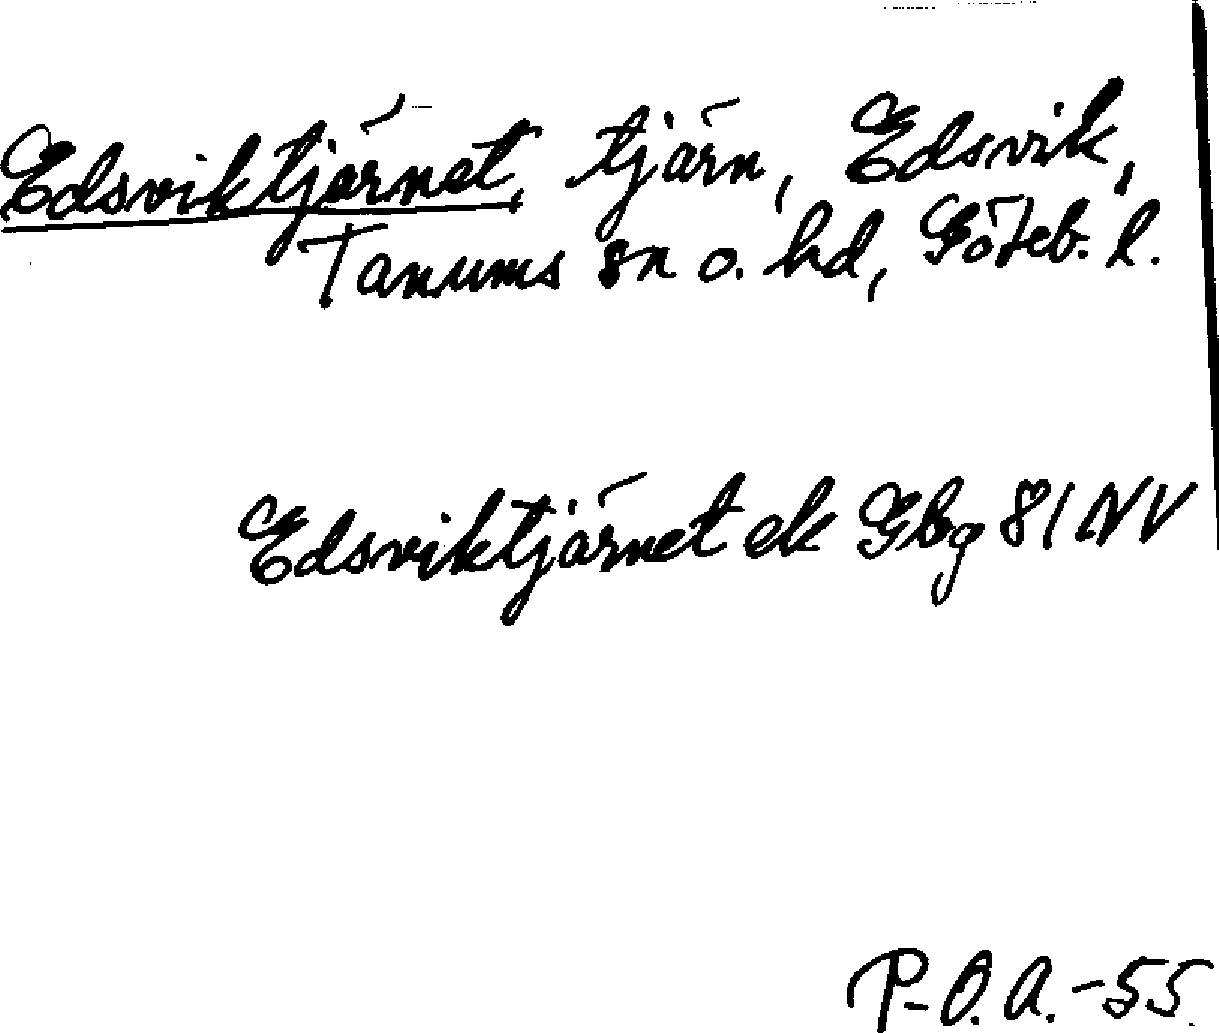 Edsviktjärnet, tjärn, Edsvik,
Tanums sn o. hd, Göteb. l.
Edsviktjärnet ek Gbg 81 NV
P-O. A. -55.